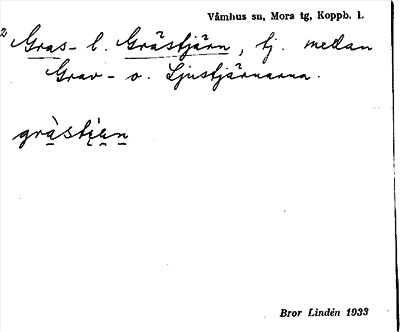 Våmhus sn, Mora tg, Koppb. l.
2 Gras- l. Grästjärn, tj. mellan
Grav- o. Ljustjärnarna.
gràstjạ̈n
Bror Lindén 1933